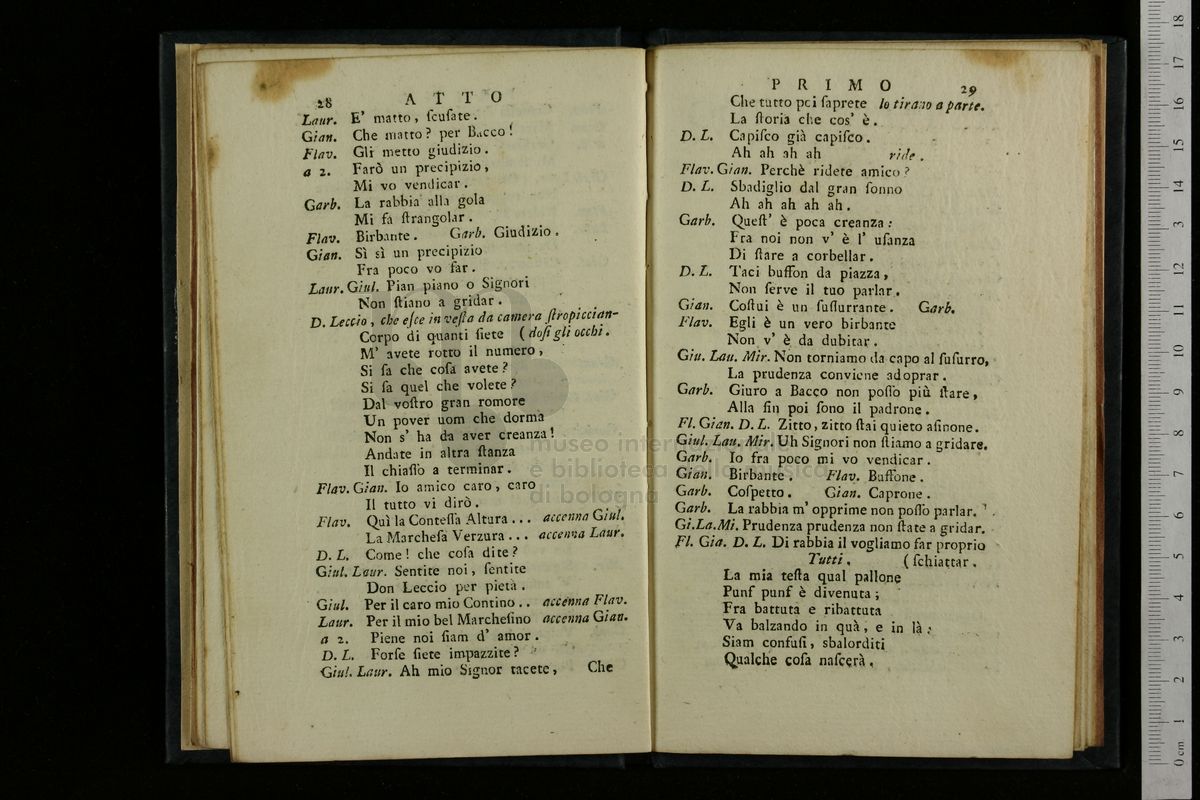 28 ATTO
Laur. E' matto, ſcuſate.
Gian. Che matto? per Bacco!
Flav. Gli metto giudizio.
a 2. Farò un precipizio,
Mi vo vendicar.
Garb. La rabbia alla gola
Mi fa ſtrangolar.
Flav. Birbante. Garb. Giudizio.
Gian. Sì sì un precipizio
Fra poco vo far.
Laur. Giul. Pian piano o Signori
Non ſtiano a gridar.
D. Leccio, che eſce in veſta da camera ſtropiccian-
Corpo di quanti ſiete (doſi gli occhi.
M' avete rotto il numero,
Si ſa che coſa avete?
Si ſa quel che volete?
Dal voſtro gran romore
Un pover uom che dorma
Non s' ha da aver creanza!
Andate in altra ſtanza
Il chiaſſo a terminar.
Flav. Gian. Io amico caro, caro
Il tutto vi dirò.
Flav. Quì la Conteſſa Altura... accenna Giul.
La Marcheſa Verzura... accenna Laur.
D. L. Come! che coſa dite?
Giul. Laur. Sentite noi, ſentite
Don Leccio per pietà.
Giul. Per il caro mio Contino.. accenna Flav.
Laur. Per il mio bel Marcheſino accenna Gian.
a 2. Piene noi ſiam d' amor.
D. L. Forſe ſiete impazzite?
Giul. Laur. Ah mio Signor tacete, Che
PRIMO 29
Che tutto poi ſaprete lo tirano a parte.
La ſtoria che cos' è.
D. L. Capiſco già capiſco.
Ah ah ah ah ride.
Flav. Gian. Perchè ridete amico?
D. L. Sbadiglio dal gran ſonno
Ah ah ah ah ah.
Garb. Queſt' è poca creanza:
Fra noi non v' è l' uſanza
Di ſtare a corbellar.
D. L. Taci buffon da piazza,
Non ſerve il tuo parlar.
Gian. Coſtui è un ſuſſurrante. Garb.
Flav. Egli è un vero birbante
Non v' è da dubitar.
Giu. Lau. Mir. Non torniamo da capo al ſuſurro,
La prudenza conviene adoprar.
Garb. Giuro a Bacco non poſſo più ſtare,
Alla fin poi ſono il padrone.
Fl. Gian. D. L. Zitto, zitto ſtai quieto aſinone.
Giul. Lau. Mir. Uh Signori non ſtiamo a gridare.
Garb. Io fra poco mi vo vendicar.
Gian. Birbante. Flav. Buffone.
Garb. Coſpetto. Gian. Caprone.
Garb. La rabbia m' opprime non poſſo parlar.
Gi. La. Mi. Prudenza prudenza non ſtate a gridar.
Fl. Gia. D. L. Di rabbia il vogliamo far proprio
Tutti. (ſchiattar.
La mia teſta qual pallone
Punf punf è divenuta;
Fra battuta e ribattuta
Va balzando in quà, e in là:
Siam confuſi, sbalorditi
Qualche coſa naſcerà.
museo internazionale
e biblioteca della musica
di bologna
0 cm 1 2 3 4 5 6 7 8 9 10 11 12 13 14 15 16 17 18